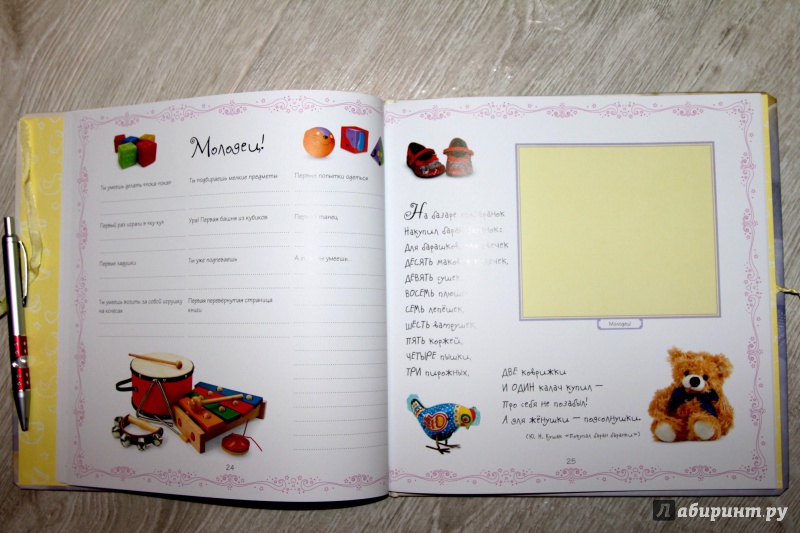 Молодец!
Ты умеешь делать тока-тока
Ты подбираешь мелкие предметы
Первые попытки одеться
Первый раз играли в «ку-ку»
Ура! Первая башня из кубиков
танец
Первые ладушки
Ты уже подпеваешь
умеешь...
Ты умеешь возить за собой игрушку
на колёсах
Первая перевёрнутая страница
книги
24
На базаре
Накупил
Для
ДЕСЯТЬ
ДЕВЯТЬ сушек,
ВОСЕМЬ
СЕМЬ лепёшек,
ШЕСТЬ ватрушек,
ПЯТЬ коржей,
ЧЕТЫРЕ пышки,
ТРИ пирожных,
ДВЕ коврижки
И ОДИН калач купил —
Про себя не позабыл!
А для жёнушки — подсолнушки.
(Ю. Н. Кушак «Покупал баран баранки»)
Молодец!
25
Лабиринт.ру